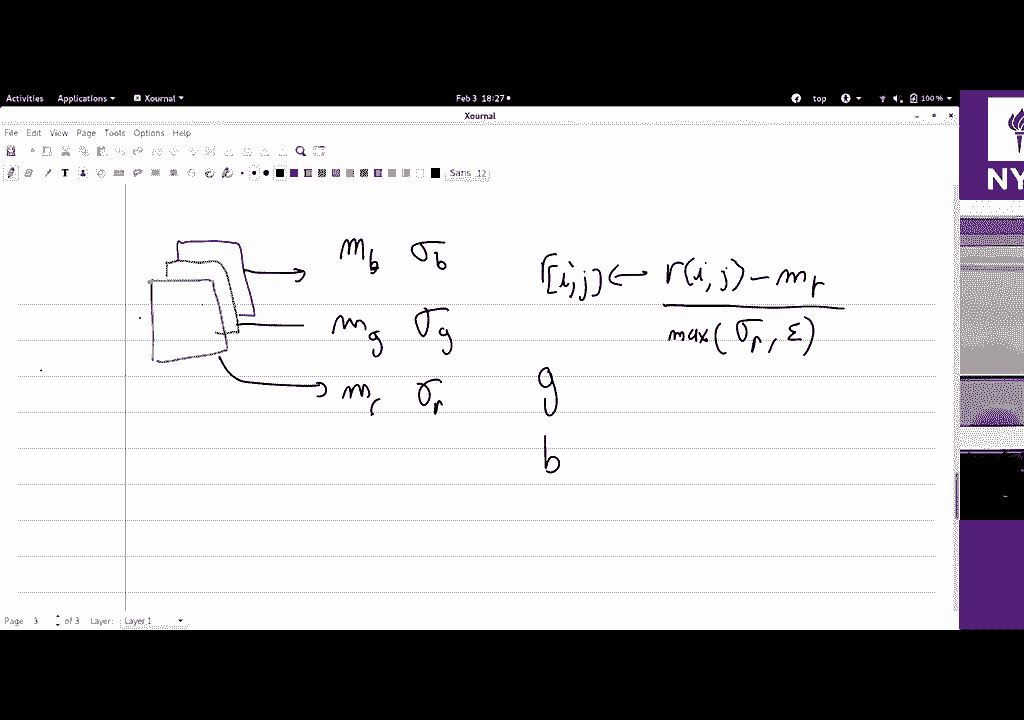 Activities Applications Xournal Feb 3 18:27 top 100 %
Xournal
File Edit View Page Tools Options Help
T Sans 12
m_b σ_b
r[i,j] ← r(i,j) - m_r
m_g σ_g
max(σ_r, ε)
m_r σ_r
g
b
Page 3 of 3 Layer: Layer 1
NY